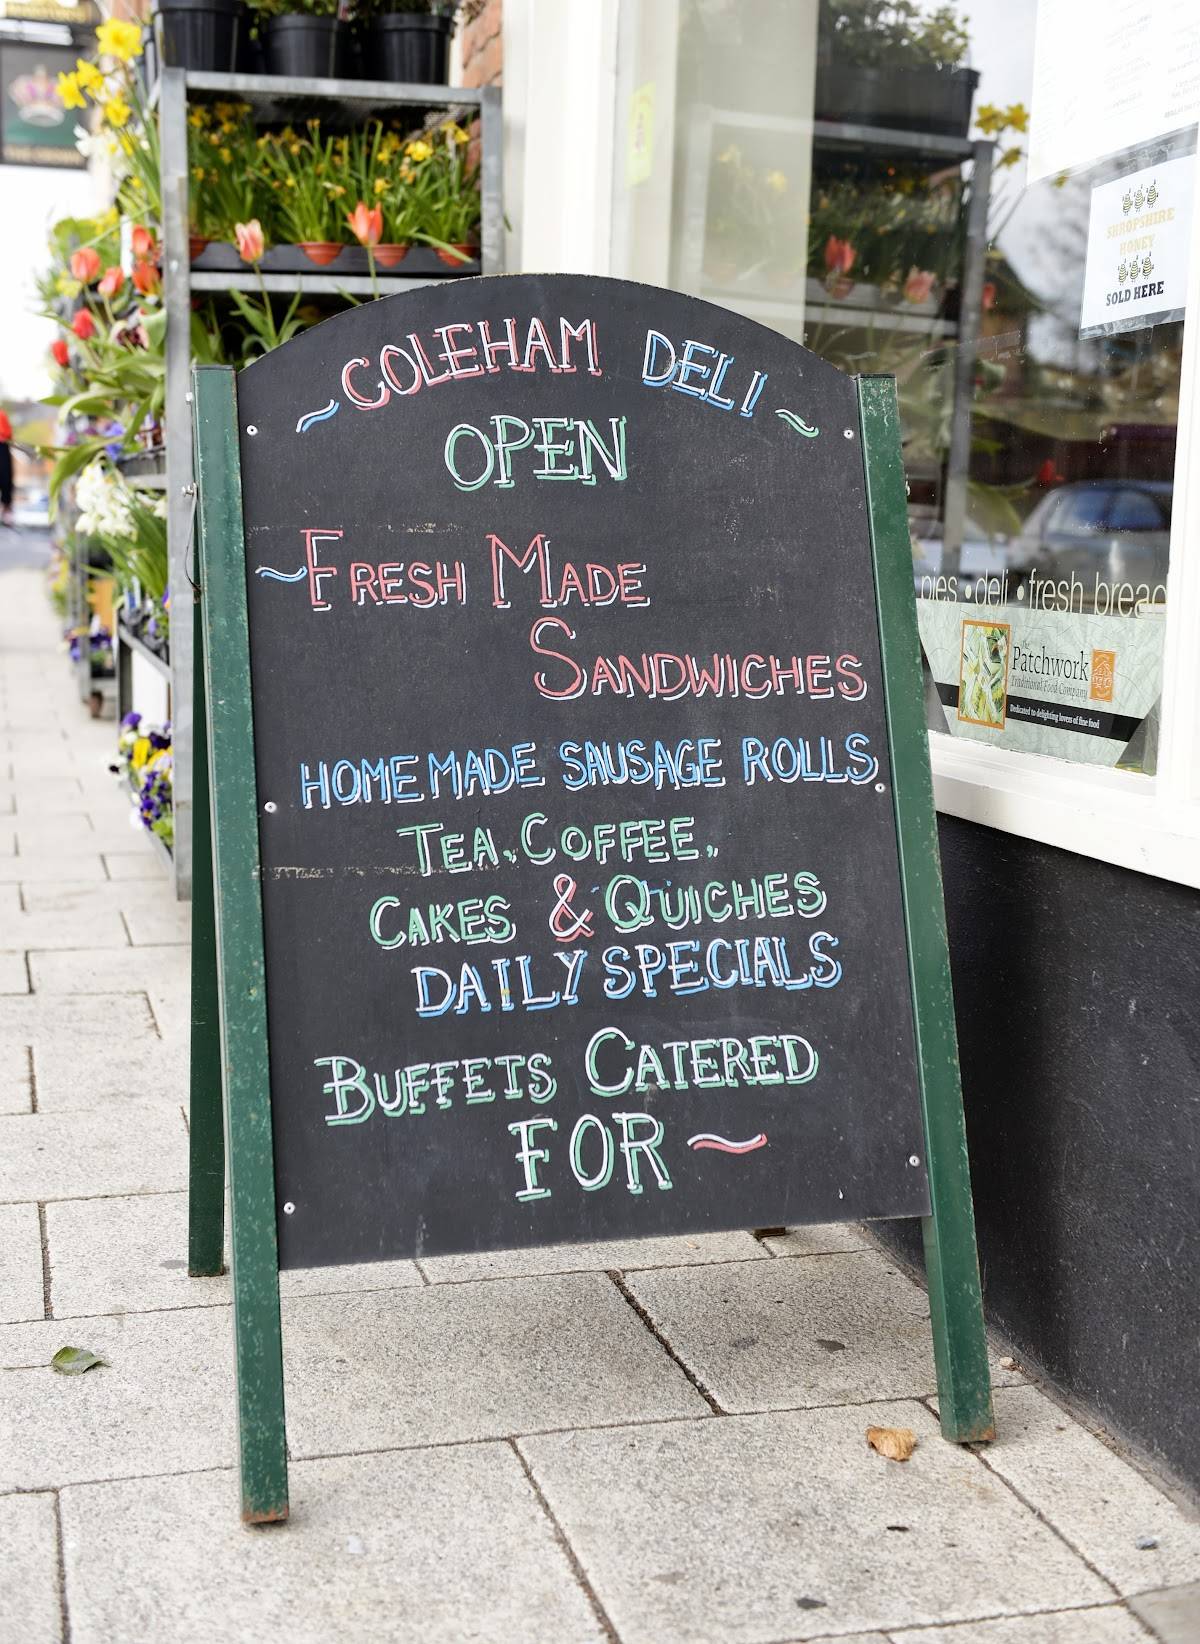 ~COLEHAM DELI~
OPEN
~FRESH MADE
SANDWICHES
HOMEMADE SAUSAGE ROLLS
TEA, COFFEE,
CAKES & QUICHES
DAILY SPECIALS
BUFFETS CATERED
FOR~
SHROPSHIRE
HONEY
SOLD HERE
pies • deli • fresh bread
The
Patchwork
Traditional Food Company
Dedicated to delighting lovers of fine food